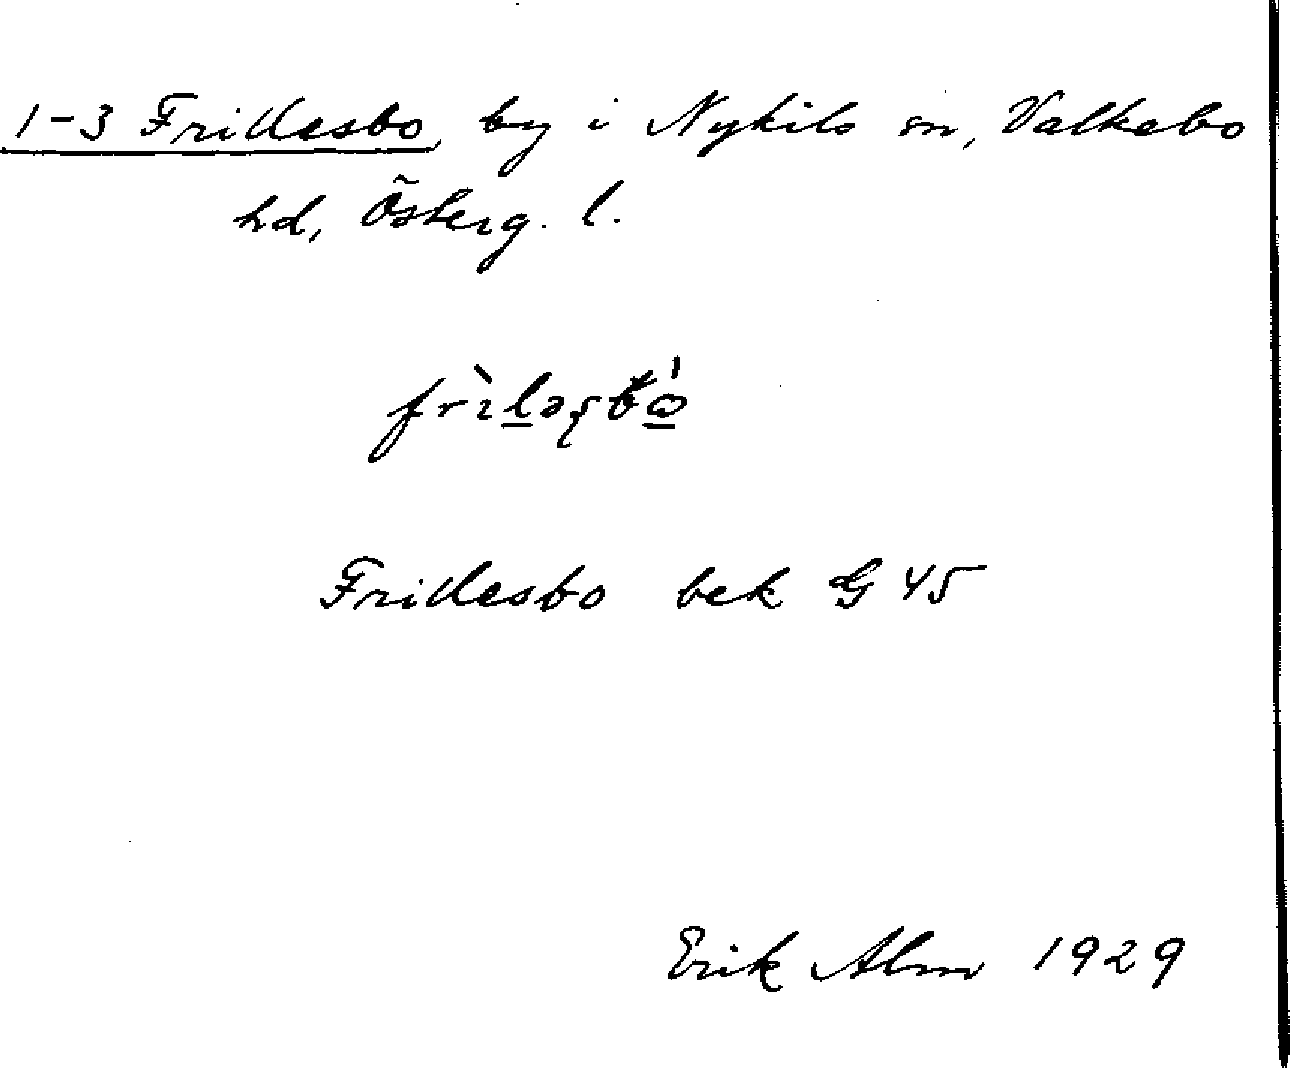 1-3 Frillesbo, by i Nykils sn, Valkebo
hd, Österg. l.
Frillesbo bek G 45
Erik Alm 1929